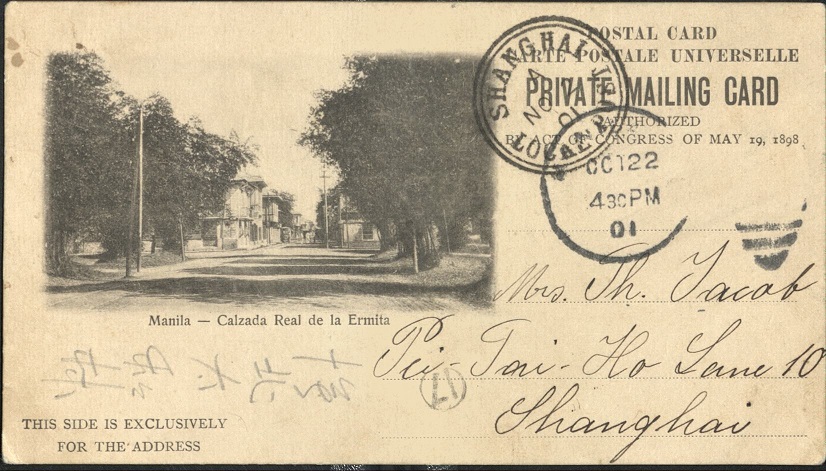 POSTAL CARD
CARTE POSTALE UNIVERSELLE
PRIVATE MAILING CARD
AUTHORIZED
BY ACT OF CONGRESS OF MAY 19, 1898
SHANGHAI
LOCAL POST
OCT 22
430 PM
01
Manila — Calzada Real de la Ermita
Mrs. Th. Jacob
Pei-Tai-Ho Lane 10
Shanghai
17
THIS SIDE IS EXCLUSIVELY
FOR THE ADDRESS